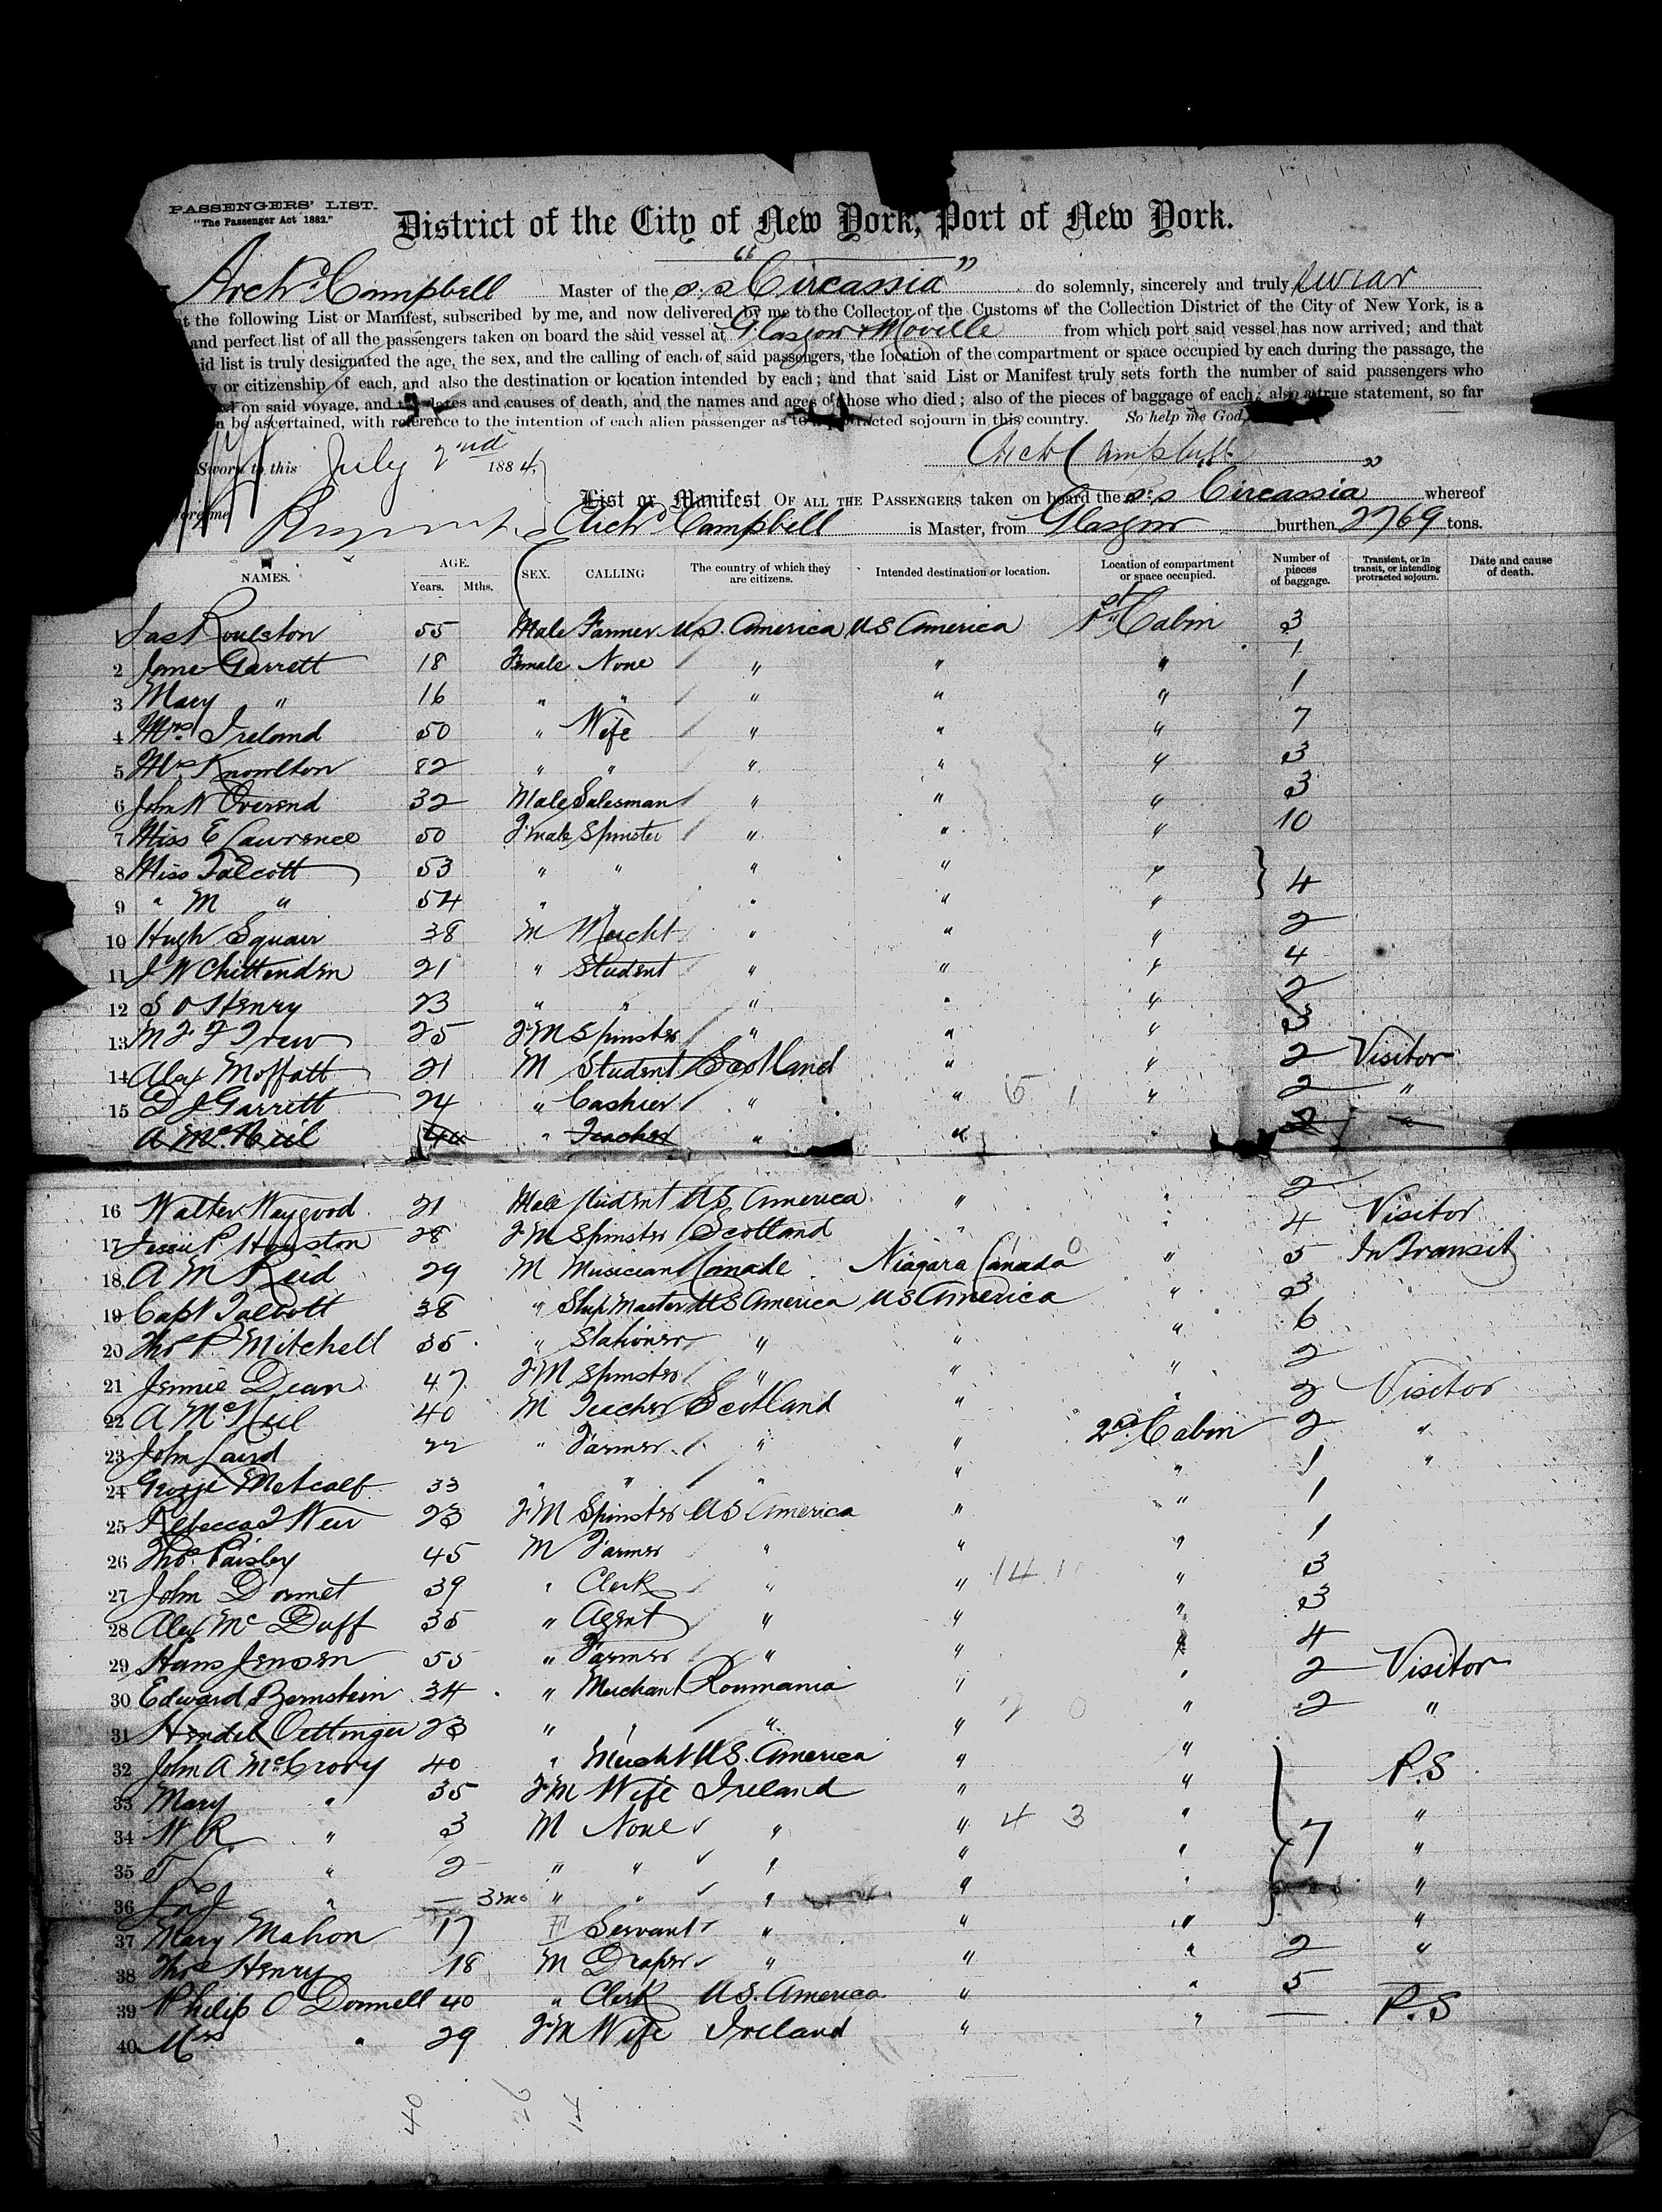 PASSENGERS' LIST.
"The Passenger Act 1882."
District of the City of New York, Port of New York.
Archd. Campbell Master of the s.s "Circassia" do solemnly, sincerely and truly swear
the following List or Manifest, subscribed by me, and now delivered by me to the Collector of the Customs of the Collection District of the City of New York, is a
and perfect list of all the passengers taken on board the said vessel at Glasgow & Moville from which port said vessel has now arrived; and that
list is truly designated the age, the sex, and the calling of each of said passengers, the location of the compartment or space occupied by each during the passage, the
or citizenship of each, and also the destination or location intended by each; and that said List or Manifest truly sets forth the number of said passengers who
on said voyage, and the dates and causes of death, and the names and ages of those who died; also of the pieces of baggage of each; also a true statement, so far
be ascertained, with reference to the intention of each alien passenger as to a protracted sojourn in this country. So help me God,
Sworn to this July 2nd 1884, Archd Campbell
List or Manifest OF ALL THE PASSENGERS taken on board the s.s "Circassia" whereof
Archd. Campbell is Master, from Glasgow burthen 2769 tons.
NAMES. AGE. Years. Mths. SEX. CALLING The country of which they are citizens. Intended destination or location. Location of compartment or space occupied. Number of pieces of baggage. Transient, or in transit, or intending protracted sojourn. Date and cause of death.
Jas Roulston 55 Male Farmer U.S. America US America 1st Cabin 3
2 Jane Garrett 18 Female None " " " 1
3 Mary " 16 " " " " " 1
4 Mrs. Ireland 50 " Wife " " " 7
5 Mrs Knowlton 82 " " " " " 3
6 John W Overend 32 Male Salesman " " " 3
7 Miss E Lawrence 50 Female Spinster " " " 10
8 Miss Talcott 53 " " " " " } 4
9 " M " 54 " " " " "
10 Hugh Squair 38 M Mercht " " " 2
11 J W Chittenden 21 " Student " " " 4
12 S O Henry 23 " " " " " 2
13 M F F Drew 25 F.M Spinster " " " 3
14 Alex Moffatt 21 M Student Scotland " " 2 Visitor
15 D J Garrett 24 " Cashier " " 5 1 " 2 "
A McNeil 44 " Teacher " " " 2 "
16 Walter Waygood 21 Male Student US America " " 2
17 Jessie P. Houston 28 F.M Spinster Scotland " " 4 Visitor
18 A M Reid 29 M Musician Canada Niagara Canada 0 " 5 In Transit
19 Capt Talcott 38 " Ship Master US America US America " 3
20 Thos P Mitchell 35 " Stationer " " " 6
21 Jennie Dean 47 F.M Spinster " " " 2
22 A McNeil 40 M Teacher Scotland " " 2 Visitor
23 John Laird 22 " Farmer " " 2nd Cabin 2 "
24 George Metcalf 33 " " " " " 1 "
25 Rebecca J Weir 23 F.M Spinster US America " " 1
26 Thos. Paisley 45 M Farmer " " " 1
27 John Dormet 39 " Clerk " " 14 1 " 3
28 Alex McDuff 35 " Agent " " " 3
29 Hans Jensen 55 " Farmer " " " 4
30 Edward Bernstein 34 " Merchant Roumania " " 2 Visitor
31 Hendel Oettinger 23 " " " " 2 0 " 2 "
32 John A McCrory 40 " Mercht U.S. America " "
33 Mary " 35 F.M Wife Ireland " " P.S
34 W R " 3 M None " " 4 3 " 7 "
35 T L " 2 " " " " " "
36 " — 3 mo " " " " " "
37 Mary Mahon 17 F Servant " " " "
38 Thos Henry 18 M Draper " " " 2 "
39 Philip O'Donnell 40 " Clerk U.S. America " " 5
40 Mrs " 29 F.M Wife Ireland " " — P.S
40 26 14